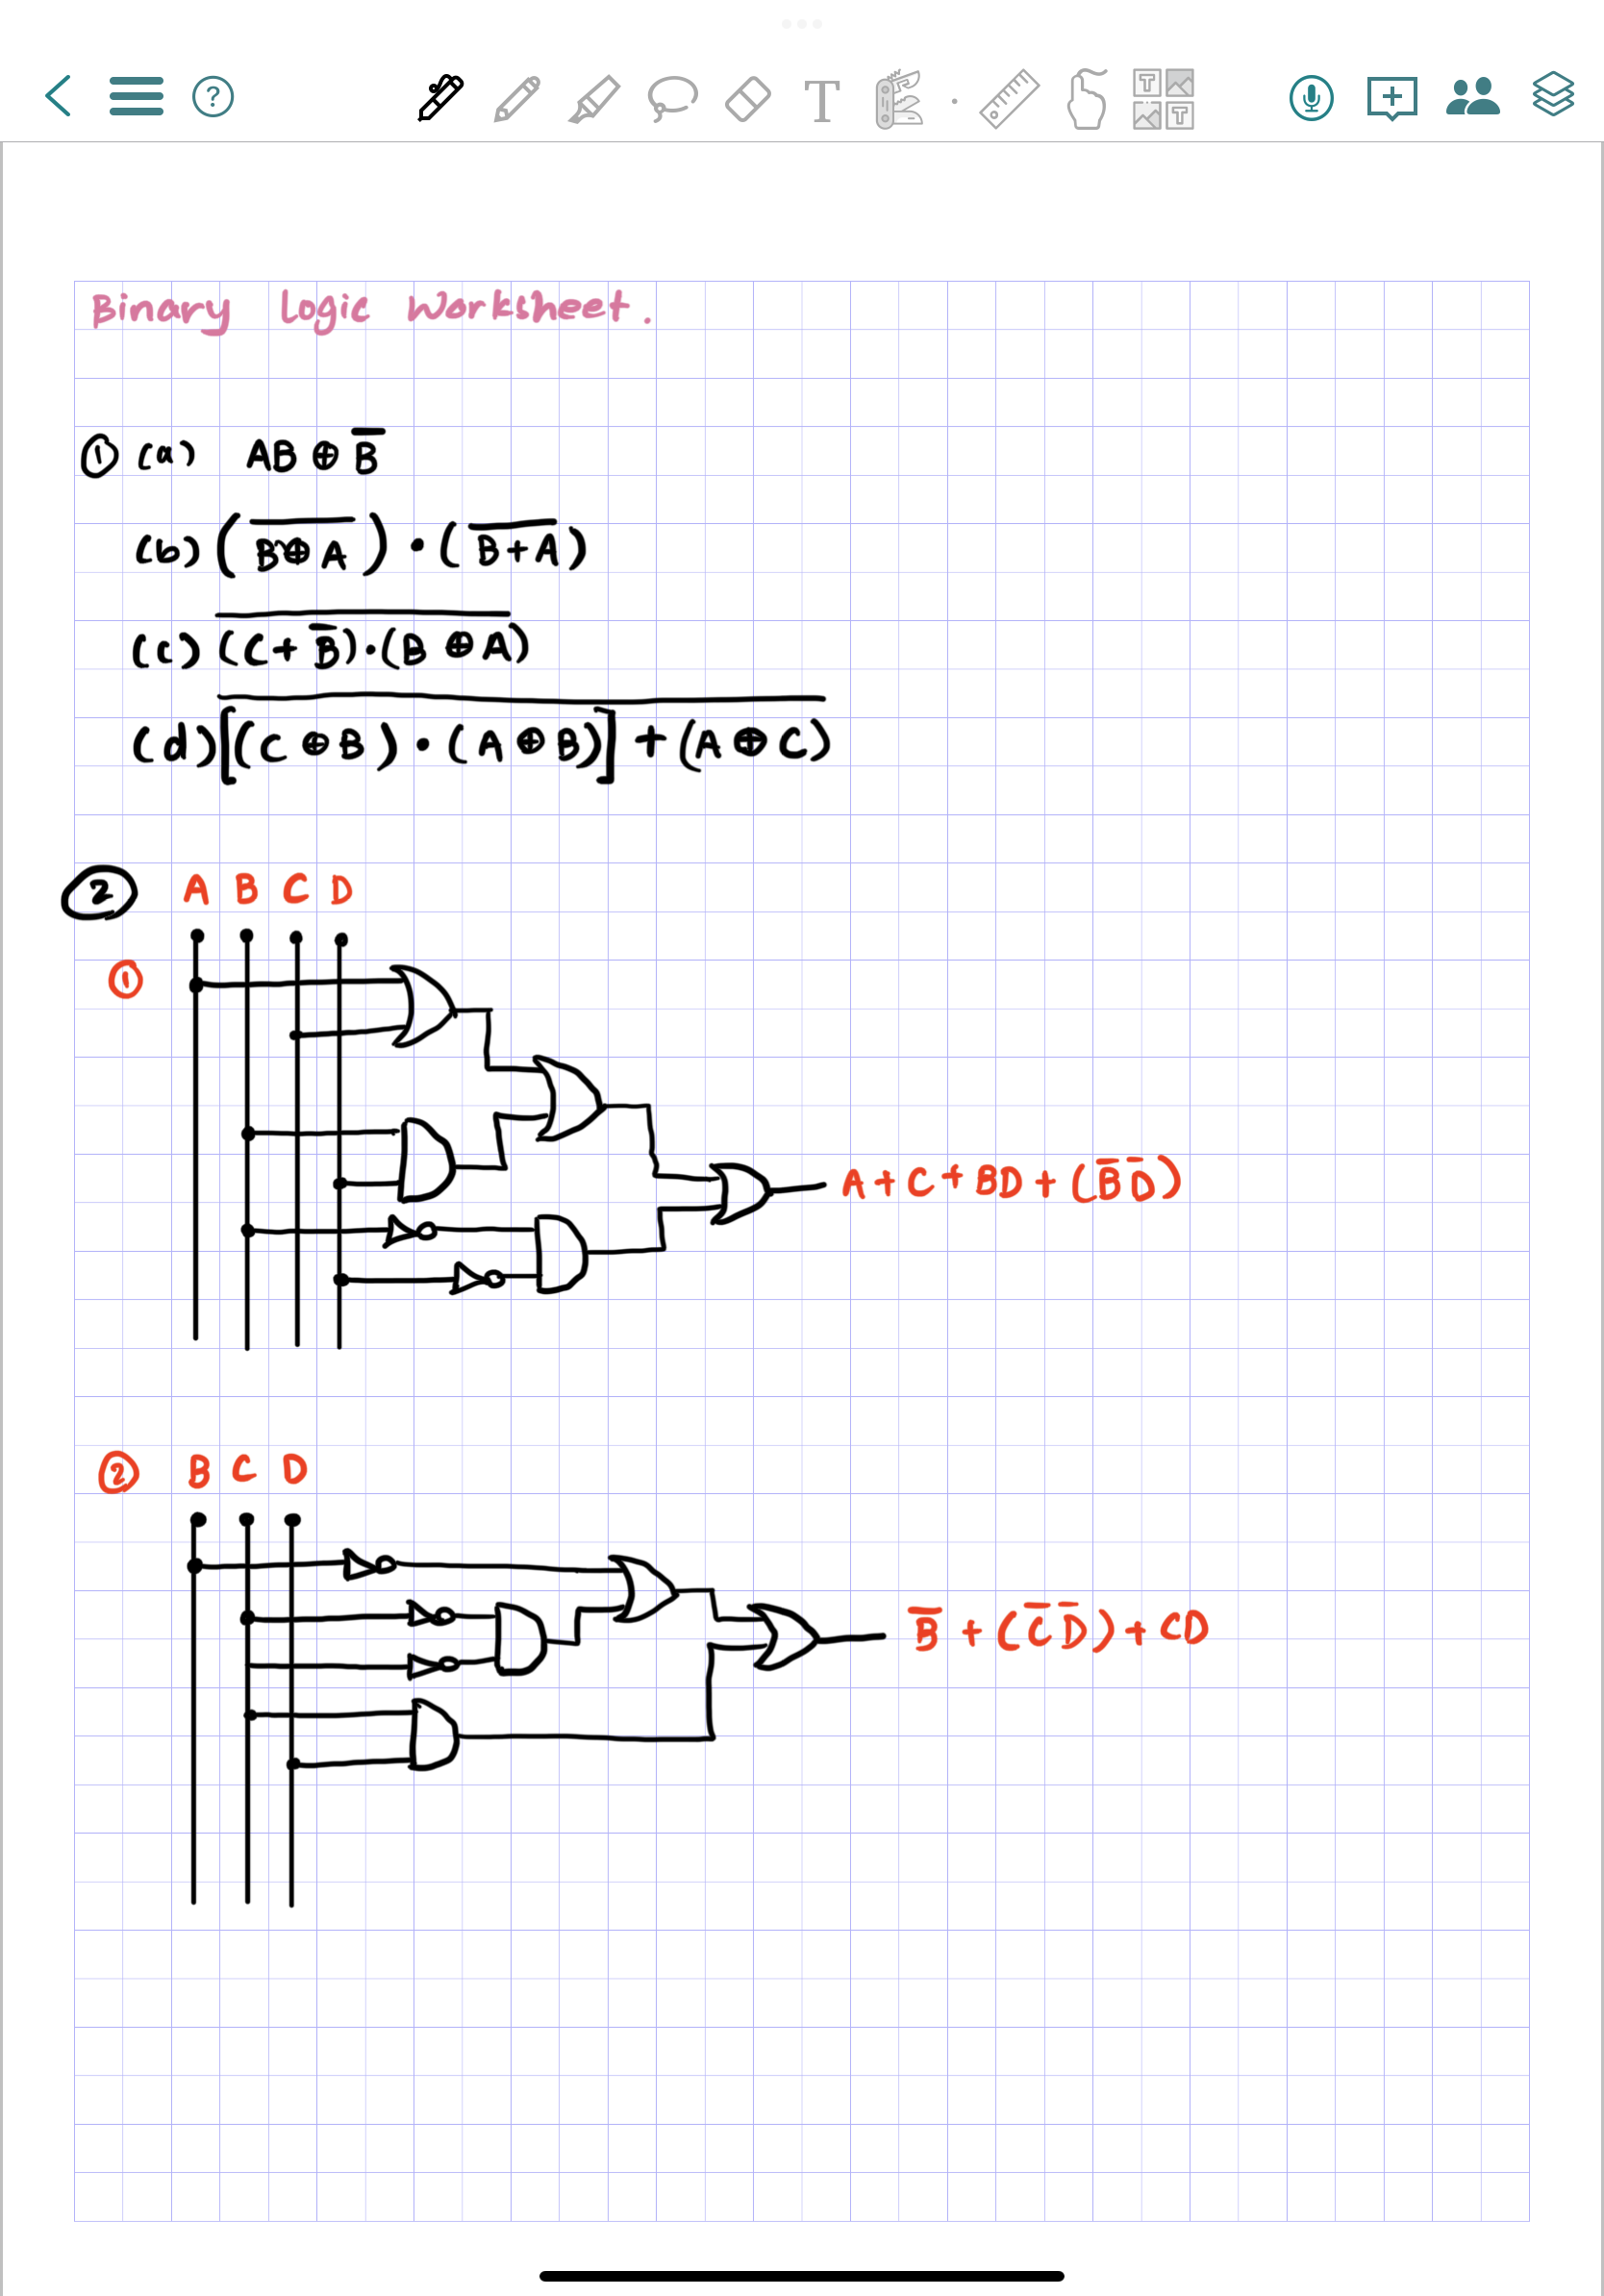 Binary Logic Worksheet.
① (a) AB ⊕ B̅
(b) (B̅ ̅⊕̅ ̅A̅) • (B̅ ̅+̅ ̅A̅)
(c) (̅(̅C̅ ̅+̅ ̅B̅)̅ ̅•̅ ̅(̅B̅ ̅⊕̅ ̅A̅)̅
(d) [̅(̅(̅C̅ ̅⊕̅ ̅B̅)̅ ̅•̅ ̅(̅A̅ ̅⊕̅ ̅B̅)̅]̅ ̅+̅ ̅(̅A̅ ̅⊕̅ ̅C̅)̅
② A B C D
①
A + C + BD + (B̅ D̅)
② B C D
B̅ + (C̅ D̅) + CD